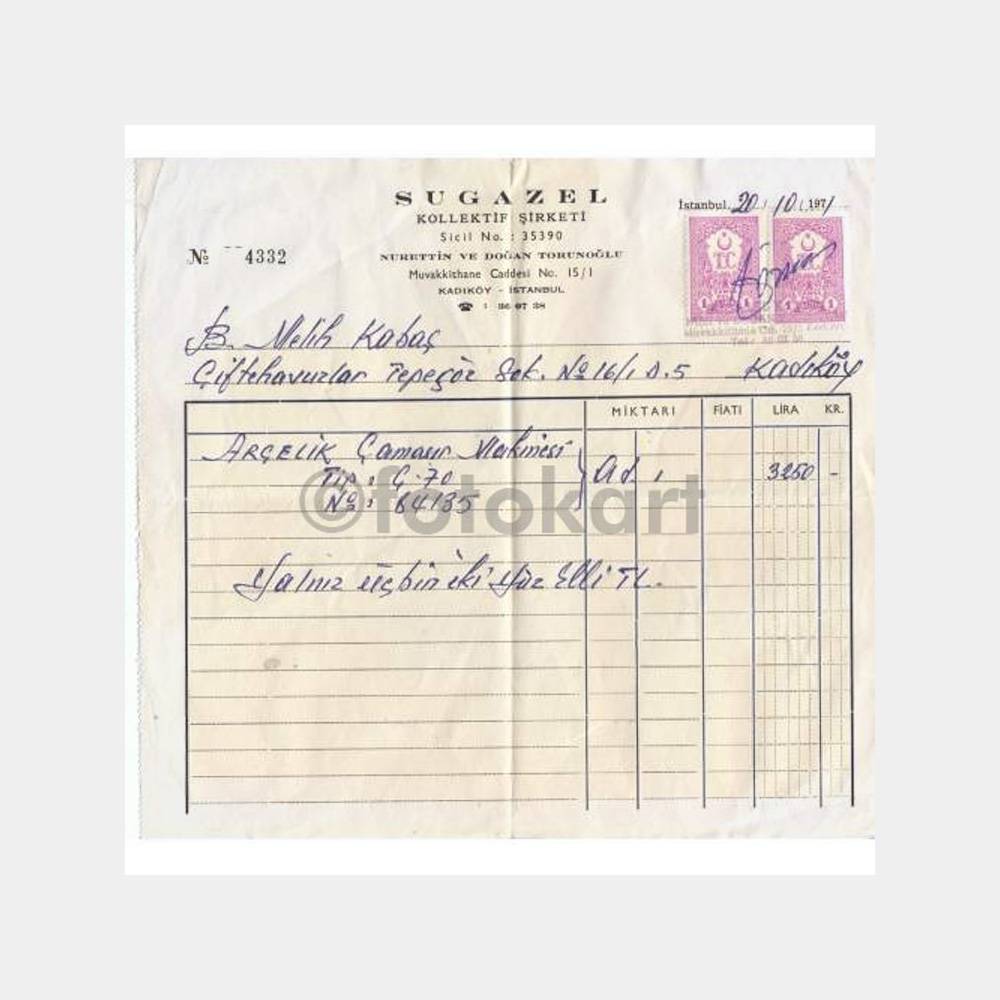 SUGAZEL
KOLLEKTİF ŞİRKETİ
Sicil No. : 35390
NURETTİN VE DOĞAN TORUNOĞLU
Muvakkithane Caddesi No. 15/1
KADIKÖY - İSTANBUL
☎ : 36 07 38
İstanbul, 20 / 10 / 1971
№ 4332
T.C.
1 1
T.C.
1 1
B. Melih Kabaç
Çiftehavuzlar Tepegöz Sok. № 16/1 D.5 Kadıköy
MİKTARI FİATI LİRA KR.
ARÇELİK Çamaşır Makinesi
Tip : Ç-70 Ad. 1 3250 -
№ : 64135
Yalnız üçbin iki yüz Elli TL.
©fotokart